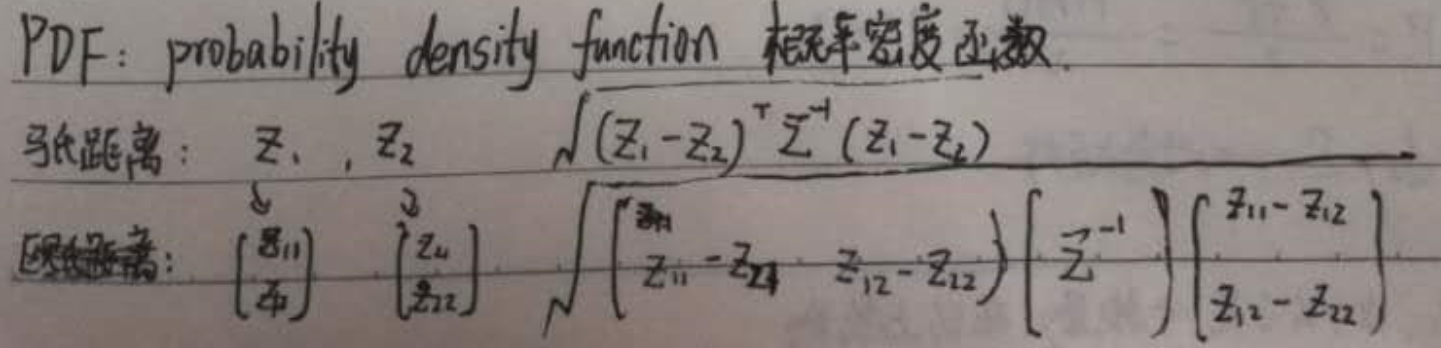 PDF: probability density function 概率密度函数.
马氏距离: Z₁, Z₂ √((Z₁-Z₂)ᵀ Σ⁻¹ (Z₁-Z₂))
欧氏距离: [Z₁₁ Z₁₂] [Z₂₁ Z₂₂] √([Z₁₁-Z₂₁ Z₁₂-Z₂₂] [Σ⁻¹] [Z₁₁-Z₁₂ Z₁₂-Z₂₂])